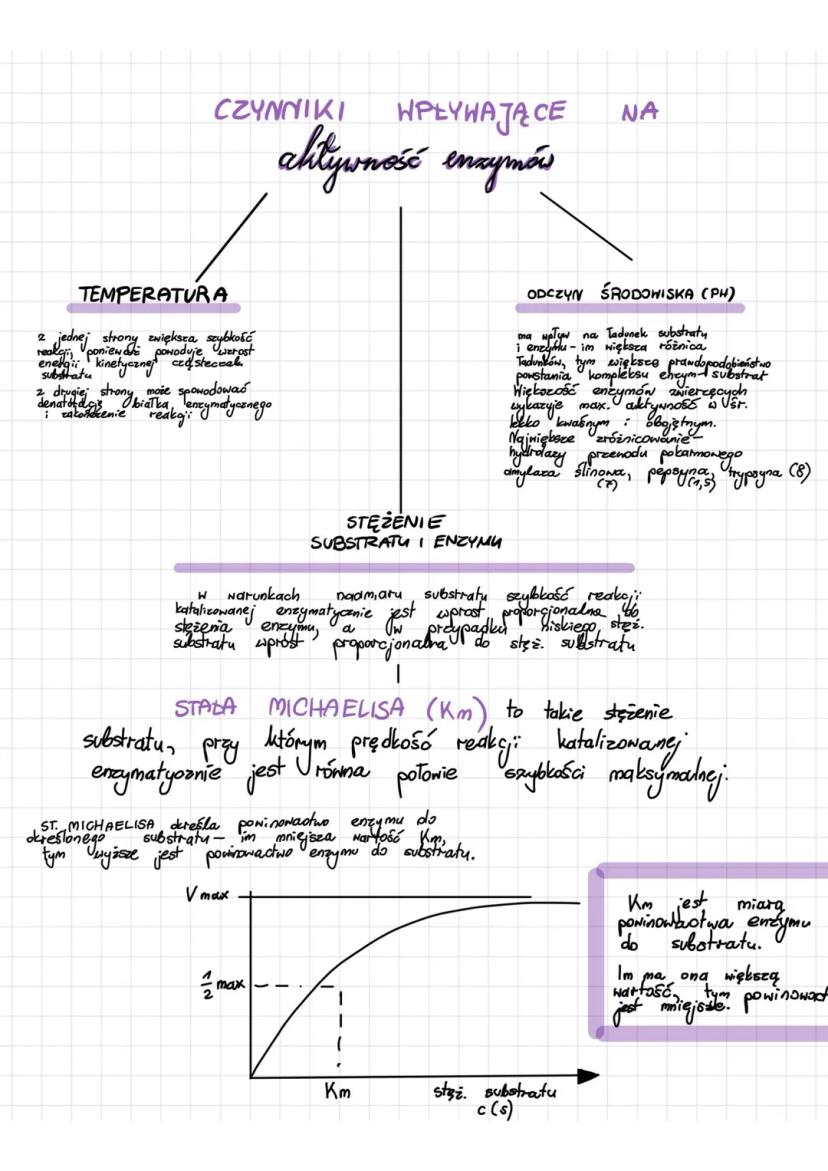 CZYNNIKI WPŁYWAJĄCE NA
aktywność enzymów
TEMPERATURA
z jednej strony zwiększa szybkość
reakcji, ponieważ powoduje wzrost
energii kinetycznej cząsteczek
substratu
z drugiej strony może spowodować
denaturację białka enzymatycznego
i zakończenie reakcji
ODCZYN ŚRODOWISKA (PH)
ma wpływ na ładunek substratu
i enzymu - im większa różnica
ładunków, tym większe prawdopodobieństwo
powstania kompleksu enzym-substrat
Większość enzymów zwierzęcych
wykazuje max. aktywność w śr.
lekko kwaśnym i obojętnym.
Największe zróżnicowanie -
hydrolazy przewodu pokarmowego
amylaza ślinowa, pepsyna, trypsyna (8)
(7) (1,5)
STĘŻENIE
SUBSTRATU I ENZYMU
W warunkach nadmiaru substratu szybkość reakcji
katalizowanej enzymatycznie jest wprost proporcjonalna do
stężenia enzymu, a w przypadku niskiego stęż.
substratu wprost proporcjonalna do stęż. substratu
STAŁA MICHAELISA (Km) to takie stężenie
substratu, przy którym prędkość reakcji katalizowanej
enzymatycznie jest równa połowie szybkości maksymalnej.
ST. MICHAELISA określa powinowactwo enzymu do
określonego substratu - im mniejsza wartość Km,
tym wyższe jest powinowactwo enzymu do substratu.
V max
1/2 max
Km
stęż. substratu
c(s)
Km jest miarą
powinowactwa enzymu
do substratu.
Im ma ona większą
wartość, tym powinowact
jest mniejsze.